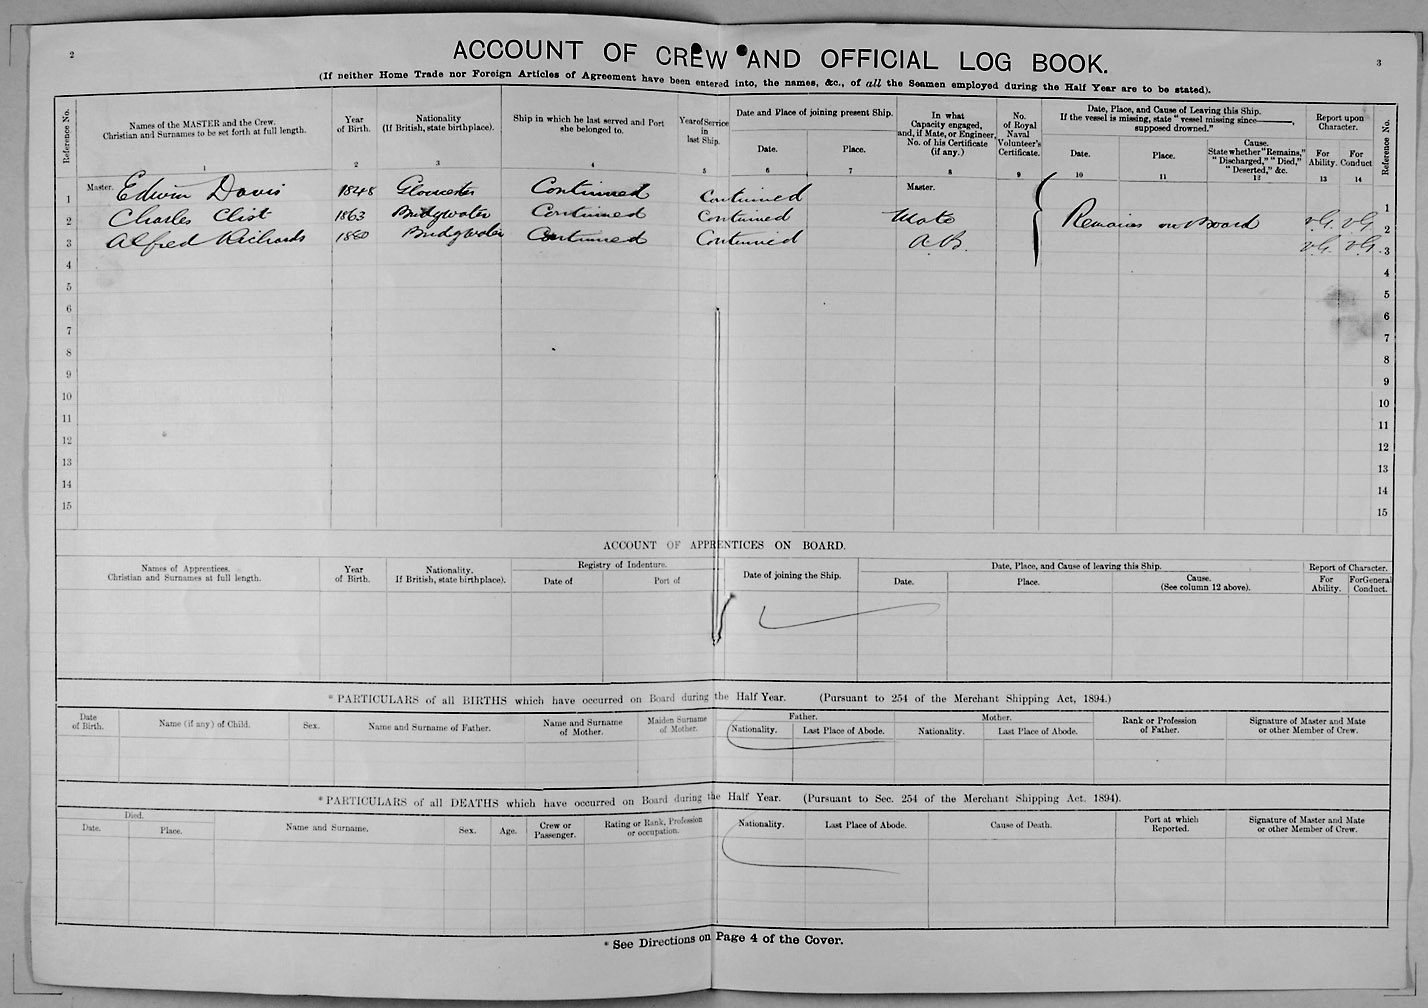 2
3
ACCOUNT OF CREW AND OFFICIAL LOG BOOK.
(If neither Home Trade nor Foreign Articles of Agreement have been entered into, the names, &c., of all the Seamen employed during the Half Year are to be stated).
Reference No.
Names of the MASTER and the Crew.
Christian and Surnames to be set forth at full length.
1
Year
of Birth.
2
Nationality
(If British, state birthplace).
3
Ship in which he last served and Port
she belonged to.
4
Year of Service
in
last Ship.
5
Date and Place of joining present Ship.
Date.
6
Place.
7
In what
Capacity engaged,
and, if Mate, or Engineer,
No. of his Certificate
(if any.)
8
No.
of Royal
Naval
Volunteer's
Certificate.
9
Date, Place, and Cause of Leaving this Ship.
If the vessel is missing, state "vessel missing since———,
supposed drowned."
Date.
10
Place.
11
Cause.
State whether "Remains,"
"Discharged," "Died,"
"Deserted," &c.
12
Report upon
Character.
For
Ability.
13
For
Conduct
14
Reference No.
1 Master. Edwin Davis 1848 Gloucester Continued Continued Master. 1
2 Charles Clist 1863 Bridgwater Continued Continued Mate Remains on Board V.G. V.G. 2
3 Alfred Richards 1880 Bridgwater Continued Continued A.B. V.G. V.G. 3
4 4
5 5
6 6
7 7
8 8
9 9
10 10
11 11
12 12
13 13
14 14
15 15
ACCOUNT OF APPRENTICES ON BOARD.
Names of Apprentices.
Christian and Surnames at full length.
Year
of Birth.
Nationality.
If British, state birthplace).
Registry of Indenture.
Date of
Port of
Date of joining the Ship.
Date, Place, and Cause of leaving this Ship.
Date.
Place.
Cause.
(See column 12 above).
Report of Character.
For
Ability.
For General
Conduct.
*PARTICULARS of all BIRTHS which have occurred on Board during the Half Year. (Pursuant to 254 of the Merchant Shipping Act, 1894.)
Date
of Birth.
Name (if any) of Child.
Sex.
Name and Surname of Father.
Name and Surname
of Mother.
Maiden Surname
of Mother.
Father.
Nationality.
Last Place of Abode.
Mother.
Nationality.
Last Place of Abode.
Rank or Profession
of Father.
Signature of Master and Mate
or other Member of Crew.
*PARTICULARS of all DEATHS which have occurred on Board during the Half Year. (Pursuant to Sec. 254 of the Merchant Shipping Act. 1894).
Died.
Date.
Place.
Name and Surname.
Sex.
Age.
Crew or
Passenger.
Rating or Rank, Profession
or occupation.
Nationality.
Last Place of Abode.
Cause of Death.
Port at which
Reported.
Signature of Master and Mate
or other Member of Crew.
* See Directions on Page 4 of the Cover.